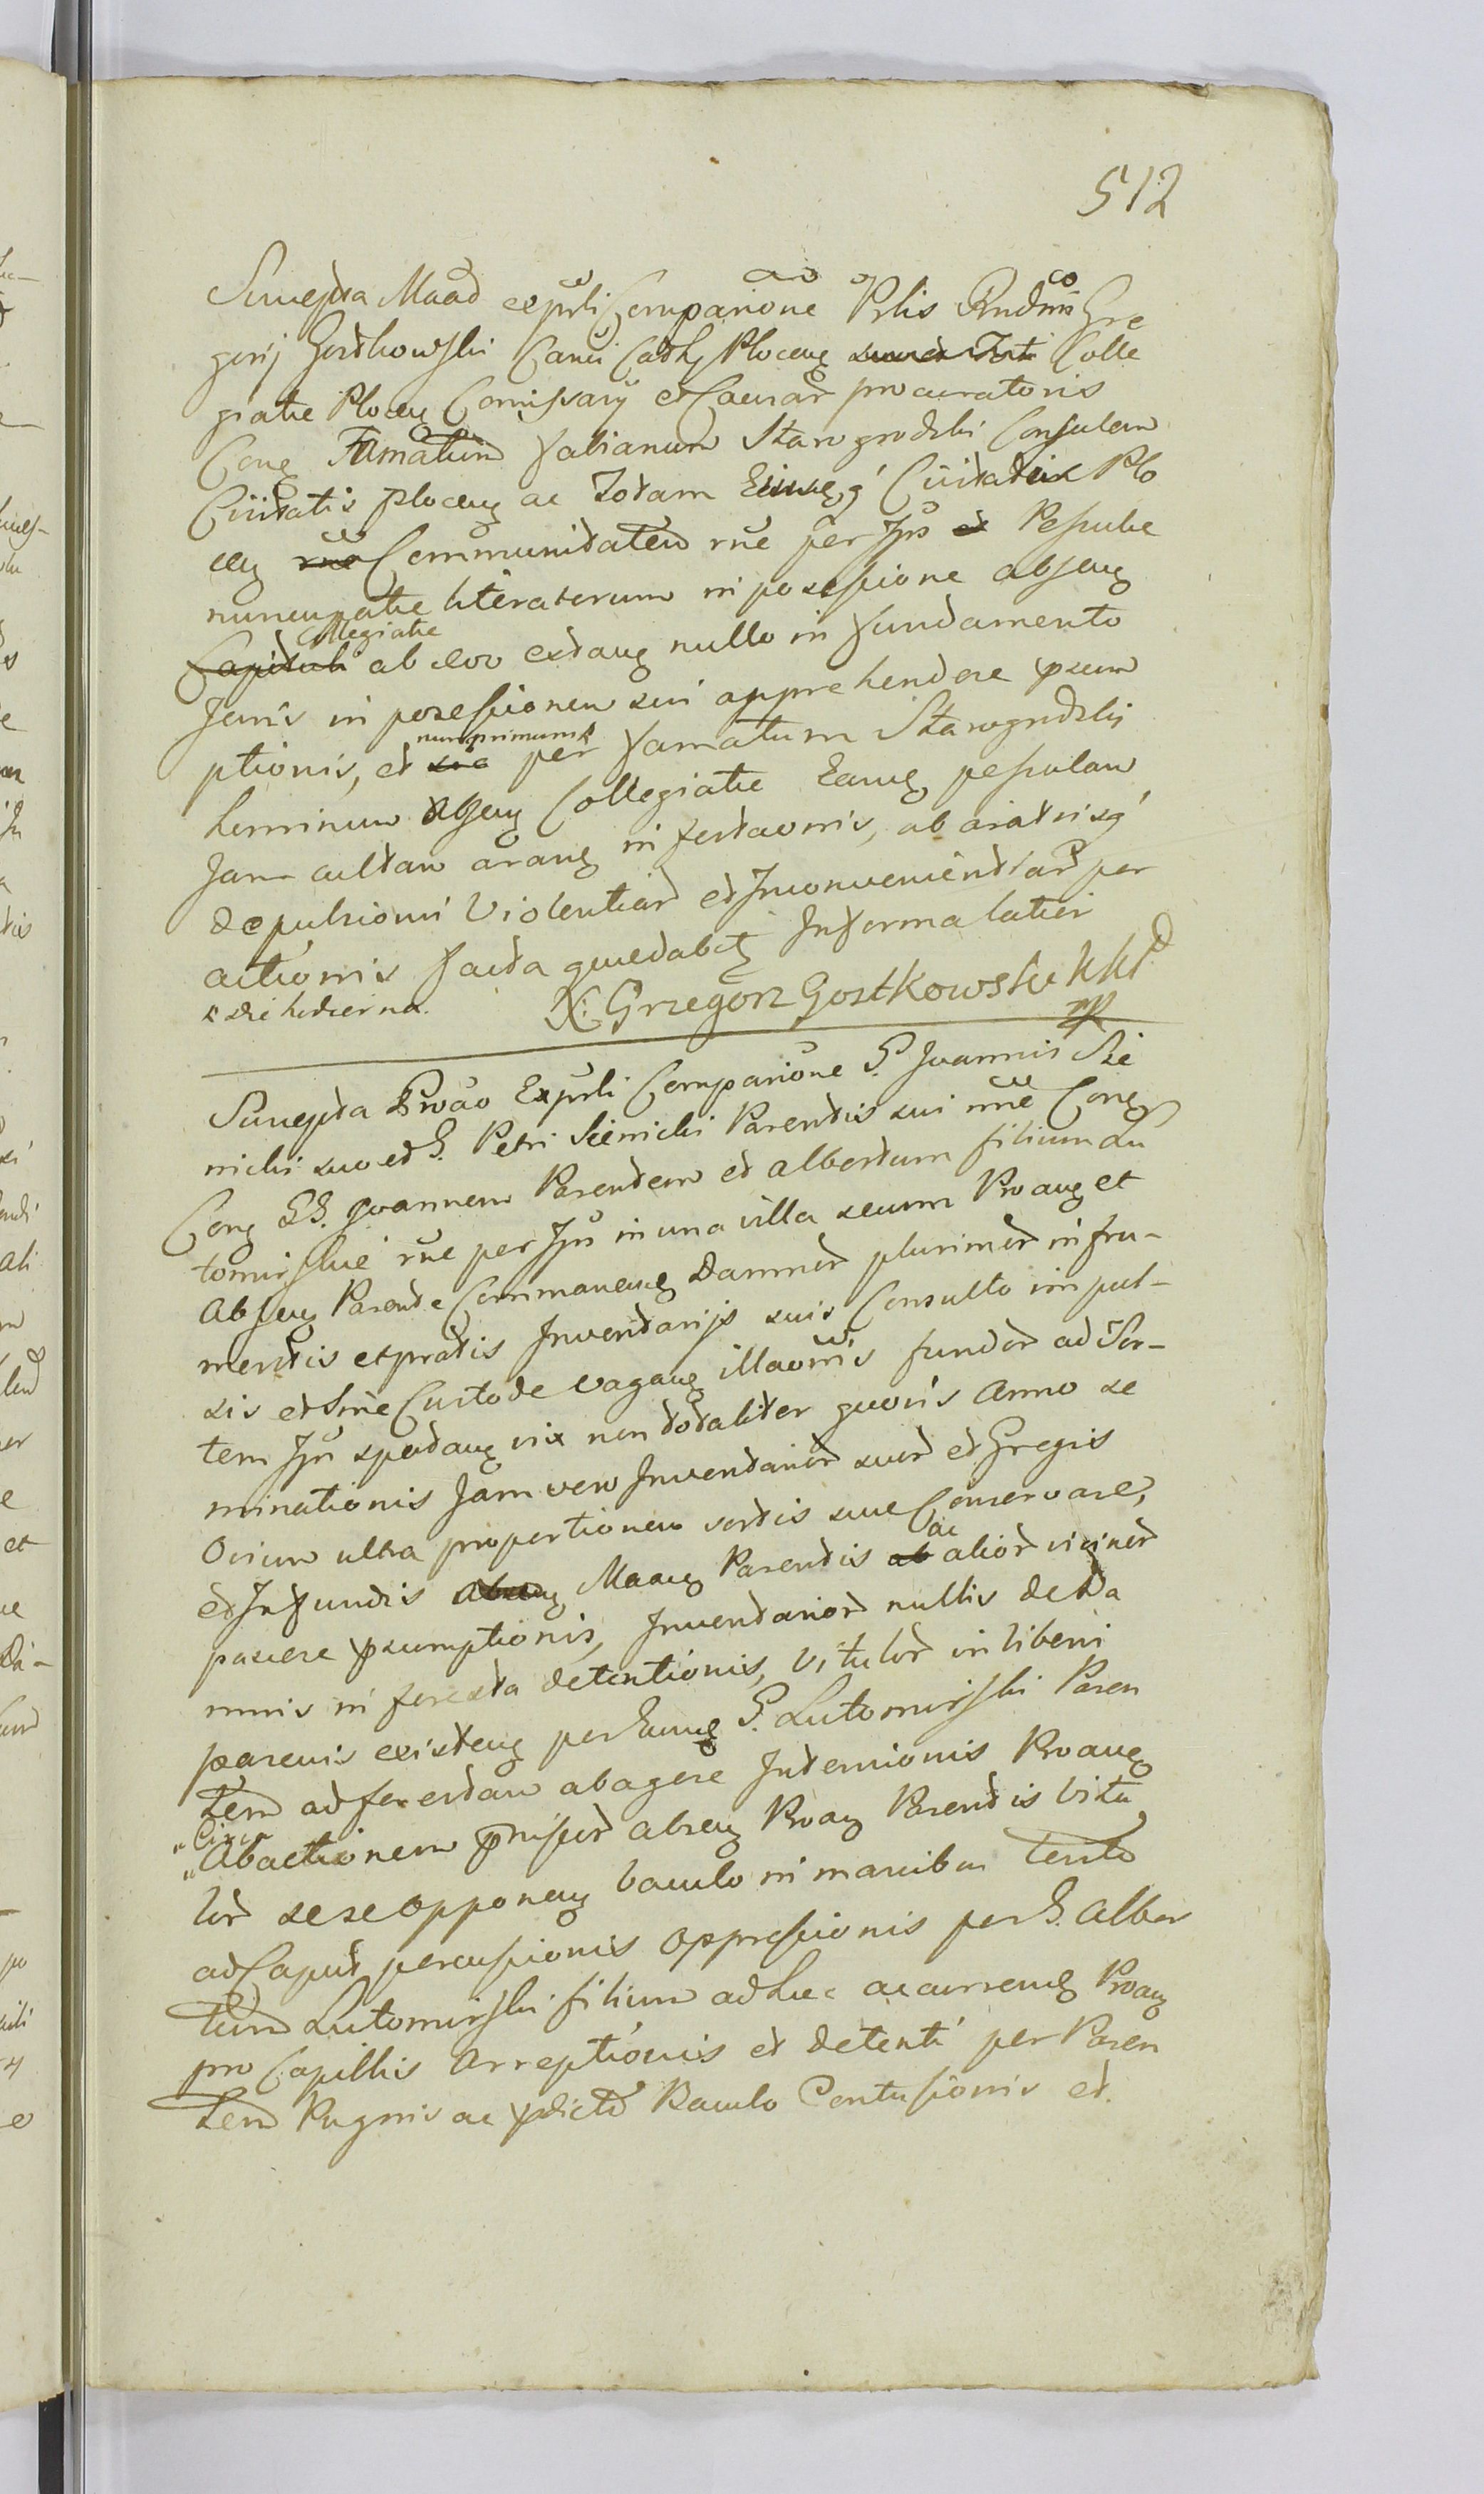 512
Suscepta Maão expsli Comparione Prlis Rndmi Gre
gorij Gostkowski Canci Cathlis Plocens suo et Toti Colle
giatæ Plocens Comissarij et Causar procuratoris
Cons Famatum Fabianum Starogrodzki Consulem
Civitatis Plocens ac Totam Eiusq Civitatis Plo
cens rne Communitatem rne per Ipos et Pessulæ
nuncupatæ literatorum in possessione absens
Capituli Collegiatæ ab ævo extans nullo in fundamento
Juris in possessionem sui apprehendere præsum
ptionis, et sic nunc primum per Famatum Starogrodzki
hominum absens Collegiatæ Eams pessulam
Jam cultam arans infestaonis, ab aratrisq
depulsionis Violentiar et Inconvenientiar per
actionis facta quedabitur In forma latiori
die hodierna. X: Grzegorz Gostkowski KKP
mp
Suscepta Prõao Expsli Comparione G. Joannis Sie
nicki suo et G. Petri Sienicki Parentis sui nne Cons
Cons GG. Joannem Parentem et Albertum filium Lu
tomirskie rne per Ipm in una villa secum Proans et
Absens Parente Commanens Damnor plurimor in fru-
mentis et pratis Inventarijs suis Consulto impul-
sis et sine Custode vagans illaonis fundor ad Sor-
tem Ipm spectans vix non totaliter quovis Anno se
minationis Jam vero Inventarior suor et Gregis
Ovium ultra proportionem sortis suæ Conservare,
et In fundis absens Maans Parentis ab ac alior vicinor
pascere præsumptionis, Inventarior nullis de Da
mnis in foresta detentionis, Vitulor in liberis
pascuis existens per Eums G. Lutomirski Paren
tem ad forestam abagere Intencionis Proans
Circa
Abactionem præmissor absens Proans Parentis Vitu
lor sese opponens baculo in manibus tento
ad Caput percussionis oppressionis per G. Alber
tum Lutomirski filium ad huc accurrens Proans
pro Capillis Arreptionis et detenti per Paren
tem Pugnis ac prædicto Baculo Contusionis et